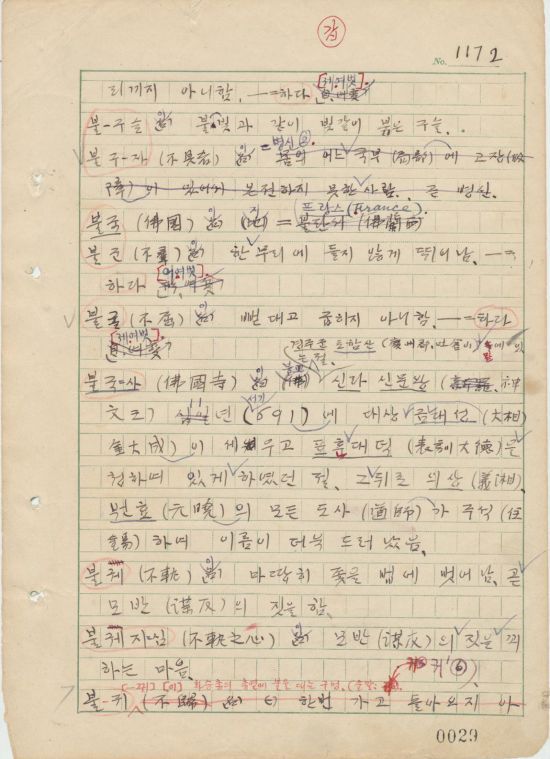 갑
No. 1172
리끼지 아니함. ―하다 [제여벗]
불-구슬 이 불빛과 같이 빛같이 붉은 구슬.
불구-자 (不具者) 이 = 병신② 몸의 어느 국부 (局部) 에 고장
이 있어서 온전하지 못한 사람. 곧 병신.
불국 (佛國) 이 (지) = 프랑스 (France).
불군 (不群) 이 한 무리에 들지 않게 뛰어남. ―
하다 [어여벗]
불굴 (不屈) 이 뻗대고 굽히지 아니함. ―하다
[제여벗]
경주군 토함산
는 절.
불국-사 (佛國寺) 이 (불) 신라 신문왕 (神
文王) 십이년 (서기 691) 에 대상 김대성 (大相
金大成) 이 세우고 표훈대덕 (表訓大德) 을
청하여 있게 하였던 절. 그 뒤로 의상 (義湘).
원효 (元曉) 의 모든 도사 (道師) 가 주석 (住
錫) 하여 이름이 더욱 드러났음.
불궤 (不軌) 이 마땅히 좇을 법에 벗어남. 곧
모반 (謀反) 의 짓을 함.
불궤지심 (不軌之心) 이 모반 (謀反) 의 짓을 꾀
하는 마음.
불-귀 (不歸) 이 ① 한번 가고 돌아오지 아
0029